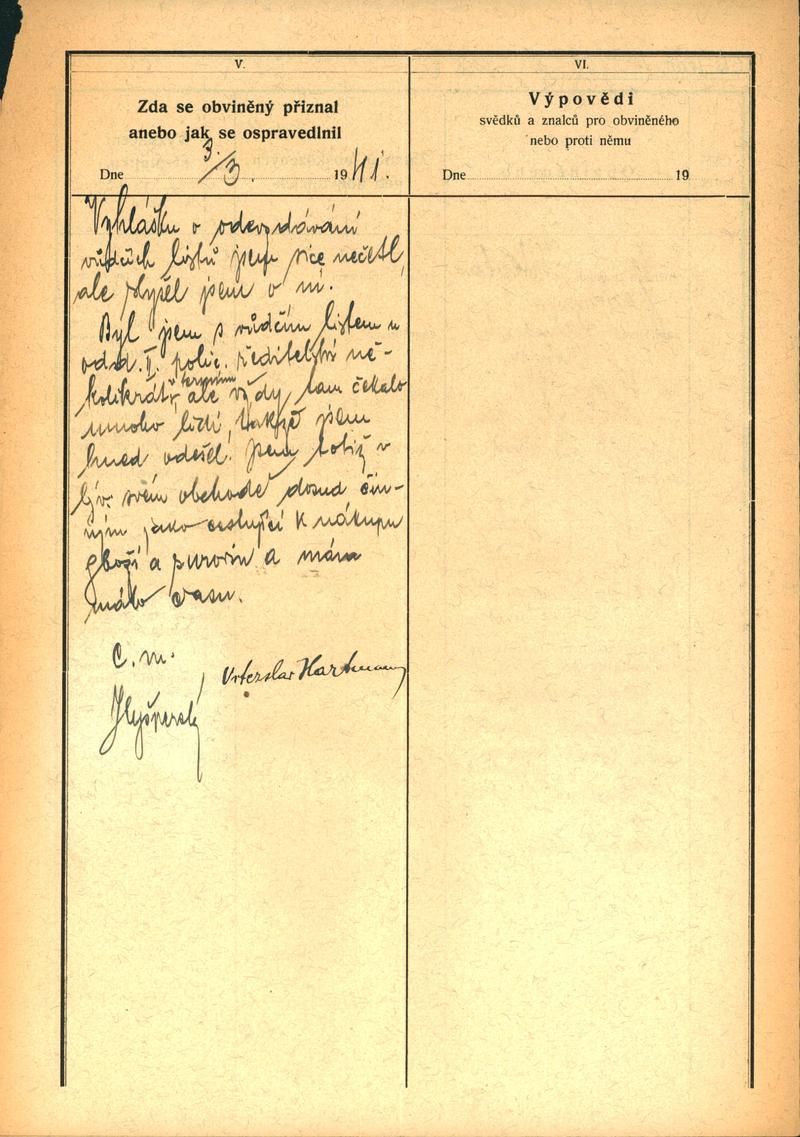 V.
Zda se obviněný přiznal
anebo jak se ospravedlnil
Dne 3./3. 1941.
Vyhlášku o odevzdávání
vůdčích listů jsem sice nečetl,
ale slyšel jsem o ní.
Byl jsem s vůdčím listem u
odd. II. polic. ředitelství ně-
kolikrát, ale vždy tam čekalo
mnoho lidí, takže jsem
hned odešel. Jsem totiž v
býv. svém obchodě dosud čin-
ným jako cestující k nákupu
zboží a surovin a mám
málo času.
C. m.
Vítezslav Hartmann
VI.
Výpovědi
svědků a znalců pro obviněného
nebo proti němu
Dne 19